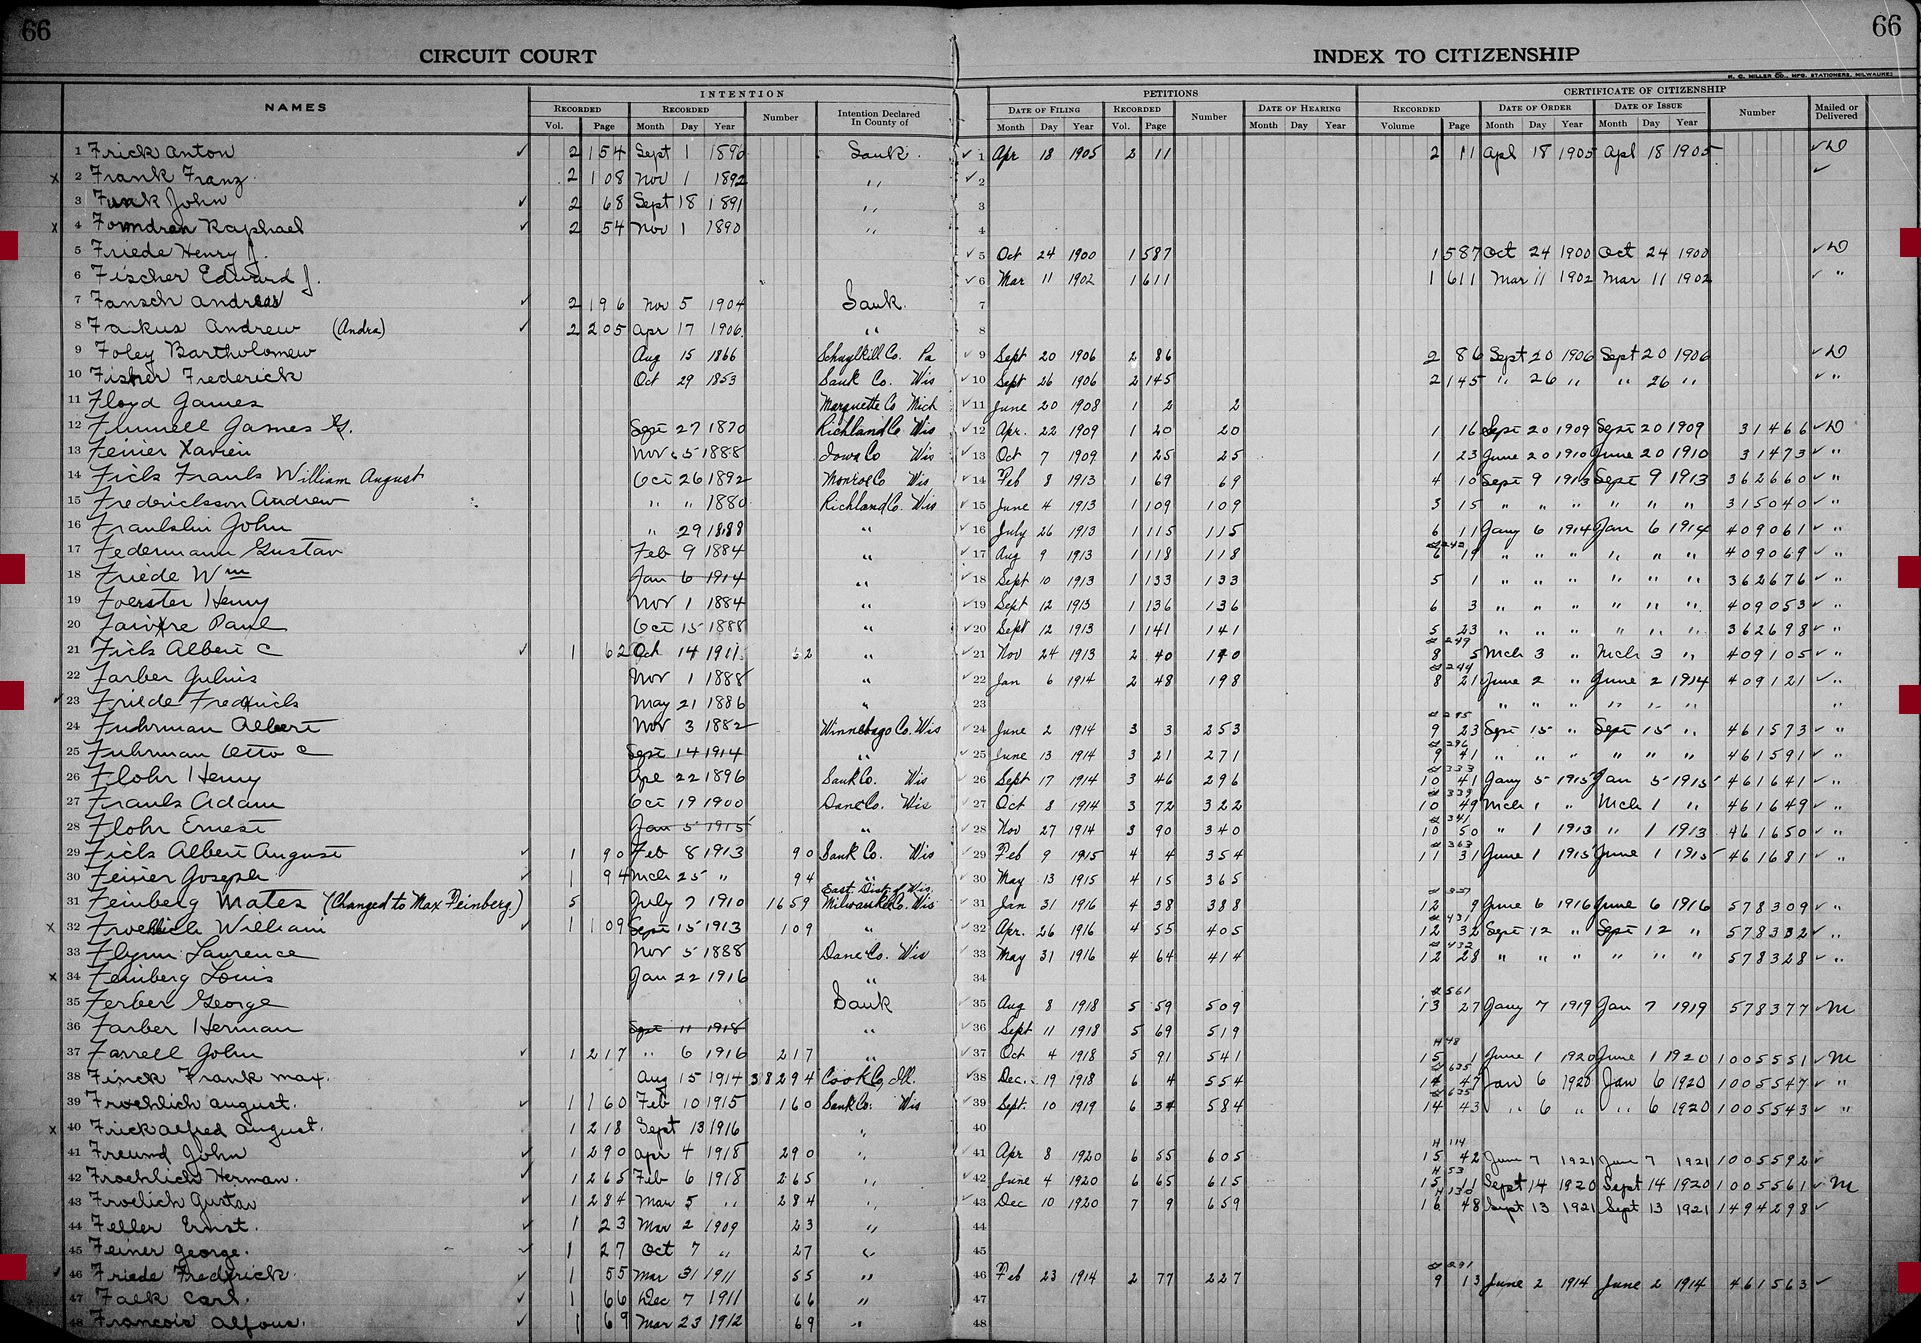 66
66
CIRCUIT COURT
INDEX TO CITIZENSHIP
H. C. MILLER CO., MFG. STATIONERS, MILWAUKEE
NAMES INTENTION PETITIONS CERTIFICATE OF CITIZENSHIP
RECORDED RECORDED Number Intention Declared In County of DATE OF FILING RECORDED Number DATE OF HEARING RECORDED DATE OF ORDER DATE OF ISSUE Number Mailed or Delivered
Vol. Page Month Day Year Month Day Year Vol. Page Month Day Year Volume Page Month Day Year Month Day Year
1 Frick Anton ✓ 2 154 Sept 1 1890 Sauk ✓ 1 Apr 18 1905 2 11 2 11 Apl 18 1905 Apl 18 1905 ✓ D
x 2 Frank Franz 2 108 Nov 1 1892 " ✓ 2 ✓
3 Funk John ✓ 2 68 Sept 18 1891 " 3
x 4 Raphael ✓ 2 54 Nov 1 1890 " 4
5 Friede Henry J. ✓ 5 Oct 24 1900 1 587 1 587 Oct 24 1900 Oct 24 1900 ✓ D
6 Fischer Edward J. ✓ 6 Mar 11 1902 1 611 1 611 Mar 11 1902 Mar 11 1902 ✓ "
7 Fansch Andreas ✓ 2 196 Nov 5 1904 Sauk. 7
8 Faikus Andrew (Andra) ✓ 2 205 Apr 17 1906 " 8
9 Foley Bartholomew Aug 15 1866 Schuylkill Co. Pa ✓ 9 Sept 20 1906 2 86 2 86 Sept 20 1906 Sept 20 1906 ✓ D
10 Fisher Frederick Oct 29 1853 Sauk Co. Wis ✓ 10 Sept 26 1906 2 145 2 145 " 26 " " 26 " ✓ "
11 Floyd James Marquette Co Mich ✓ 11 June 20 1908 1 2 2
12 Funnell James G. Sept 27 1870 Richland Co Wis ✓ 12 Apr. 22 1909 1 20 20 1 16 Sept 20 1909 Sept 20 1909 31466 ✓ D
13 Feiner Xavier Nov 5 1888 Iowa Co Wis ✓ 13 Oct 7 1909 1 25 25 1 23 June 20 1910 June 20 1910 31473 ✓ "
14 Fick Frank William August Oct 26 1892 Monroe Co Wis ✓ 14 Feb 8 1913 1 69 69 4 10 Sept 9 1913 Sept 9 1913 362660 ✓ "
15 Fredericksson Andrew " " 1880 Richland Co. Wis ✓ 15 June 4 1913 1 109 109 3 15 " " " " " " 315040 ✓ "
16 John " 29 1888 " ✓ 16 July 26 1913 1 115 115 6 11 Jany 6 1914 Jan 6 1914 409061 ✓ "
17 Federmann Gustav Feb 9 1884 " ✓ 17 Aug 9 1913 1 118 118 6 19 " " " " " " 409069 ✓ "
18 Friede Wm Jan 6 1914 " ✓ 18 Sept 10 1913 1 133 133 5 1 " " " " " " 362676 ✓ "
19 Foerster Henry Nov 1 1884 " ✓ 19 Sept 12 1913 1 136 136 6 3 " " " " " " 409053 ✓ "
20 Faivre Paul Oct 15 1888 " ✓ 20 Sept 12 1913 1 141 141 5 23 " " " " " " 362698 ✓ "
21 Fick Albert C ✓ 1 62 Oct 14 1911 62 " ✓ 21 Nov 24 1913 2 40 190 8 5 Mch 3 " Mch 3 " 409105 ✓ "
22 Farber Julius Nov 1 1888 " ✓ 22 Jan 6 1914 2 48 198 8 21 June 2 " June 2 1914 409121 ✓ "
✓ 23 Friede Fredrick May 21 1886 " 23 " " " " " " "
24 Fuhrman Albert Nov 3 1882 Winnebago Co. Wis ✓ 24 June 2 1914 3 3 253 9 23 Sept 15 " Sept 15 " 461573 ✓ "
25 Fuhrman Otto C Sept 14 1914 " ✓ 25 June 13 1914 3 21 271 9 41 " " " " " " 461591 ✓ "
26 Flohr Henry Apl 22 1896 Sauk Co. Wis ✓ 26 Sept 17 1914 3 46 296 10 41 Jany 5 1915 Jan 5 1915 461641 ✓ "
27 Frank Adam Oct 19 1900 Dane Co. Wis ✓ 27 Oct 8 1914 3 72 322 10 49 Mch 1 " Mch 1 " 461649 ✓ "
28 Flohr Ernest Jan 5 1915 " ✓ 28 Nov 27 1914 3 90 340 10 50 " 1 1913 " 1 1913 461650 ✓ "
29 Fick Albert August ✓ 1 90 Feb 8 1913 90 Sauk Co. Wis ✓ 29 Feb 9 1915 4 4 354 11 31 June 1 1915 June 1 1915 461681 ✓ "
30 Feiner Joseph ✓ 1 94 Mch 25 " 94 " ✓ 30 May 13 1915 4 15 365
31 Feinberg Mates (Changed to Max Feinberg) 5 July 7 1910 1659 East. Dist. of Wis. Milwaukee Co. Wis ✓ 31 Jan 31 1916 4 38 388 12 9 June 6 1916 June 6 1916 578309 ✓ "
x 32 Froehlich William ✓ 1 109 Sept 15 1913 109 " ✓ 32 Apr. 26 1916 4 55 405 12 32 Sept 12 " Sept 12 " 578332 ✓ "
33 Flynn Laurence Nov 5 1888 Dane Co. Wis ✓ 33 May 31 1916 4 64 414 12 28 " " " " " " 578328 ✓ "
x 34 Feinberg Louis Jan 22 1916 " 34
35 Ferber George Sauk ✓ 35 Aug 8 1918 5 59 509 13 27 Jany 7 1919 Jan 7 1919 578377 ✓ M
36 Farber Herman Sept 11 1918 " ✓ 36 Sept 11 1918 5 69 519
37 Farrell John ✓ 1 217 " 6 1916 217 " ✓ 37 Oct 4 1918 5 91 541 15 1 June 1 1920 June 1 1920 1005551 ✓ M
38 Finck Frank Max. Aug 15 1914 38294 Cook Co, Ill. ✓ 38 Dec. 19 1918 6 4 554 14 47 Jan 6 1920 Jan 6 1920 1005547 ✓ "
39 Froehlich August. ✓ 1 160 Feb 10 1915 160 Sauk Co. Wis ✓ 39 Sept. 10 1919 6 34 584 14 43 " 6 " " 6 1920 1005543 ✓ "
x 40 Frick Alfred August. 1 218 Sept 13 1916 " 40
41 Freund John ✓ 1 290 Apr 4 1918 290 " ✓ 41 Apr 8 1920 6 55 605 15 42 June 7 1921 June 7 1921 1005592 ✓
42 Froehlich Herman. ✓ 1 265 Feb 6 1918 265 " ✓ 42 June 4 1920 6 65 615 15 11 Sept 14 1920 Sept 14 1920 1005561 ✓ M
43 Froelich Gustav ✓ 1 284 Mar 5 " 284 " ✓ 43 Dec 10 1920 7 9 659 16 48 Sept 13 1921 Sept 13 1921 1494298 ✓
44 Feller Ernst. ✓ 1 23 Mar 2 1909 23 " 44
45 Feiner George. ✓ 1 27 Oct 7 " 27 " 45
46 Friede Fredrick ✓ 1 55 Mar 31 1911 55 " 46 Feb 23 1914 2 77 227 9 13 June 2 1914 June 2 1914 461563 ✓
47 Falk Carl. ✓ 1 66 Dec 7 1911 66 " 47
48 Francois Alfons. ✓ 1 69 Mar 23 1912 69 " 48